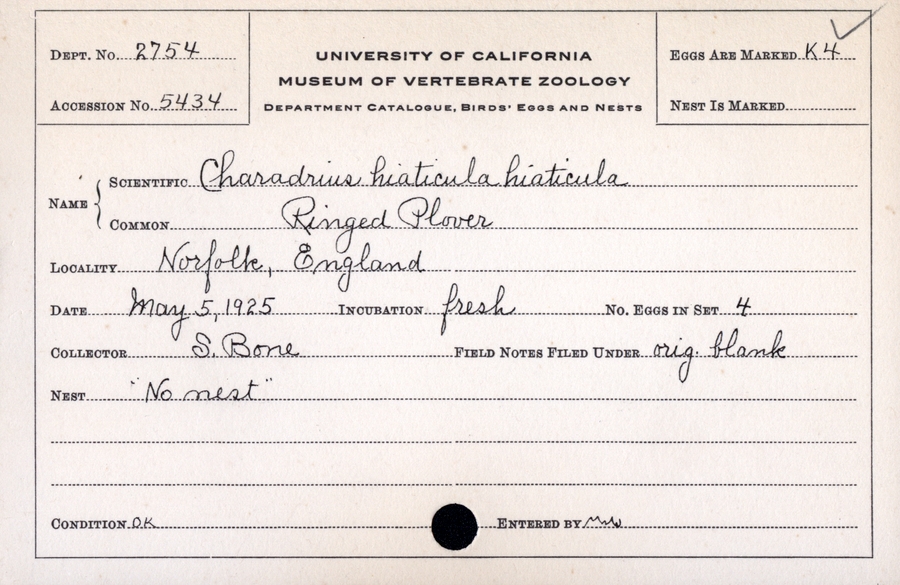 Dept. No. 2754
Accession No. 5434
UNIVERSITY OF CALIFORNIA
MUSEUM OF VERTEBRATE ZOOLOGY
Department Catalogue, Birds' Eggs and Nests
Eggs Are Marked K4
Nest Is Marked
Name
Scientific Charadrius hiaticula hiaticula
Common Ringed Plover
Locality Norfolk, England
Date May 5, 1925 Incubation fresh No. Eggs in Set 4
Collector S. Bone Field Notes Filed Under orig. blank
Nest "No nest"
Condition OK Entered by